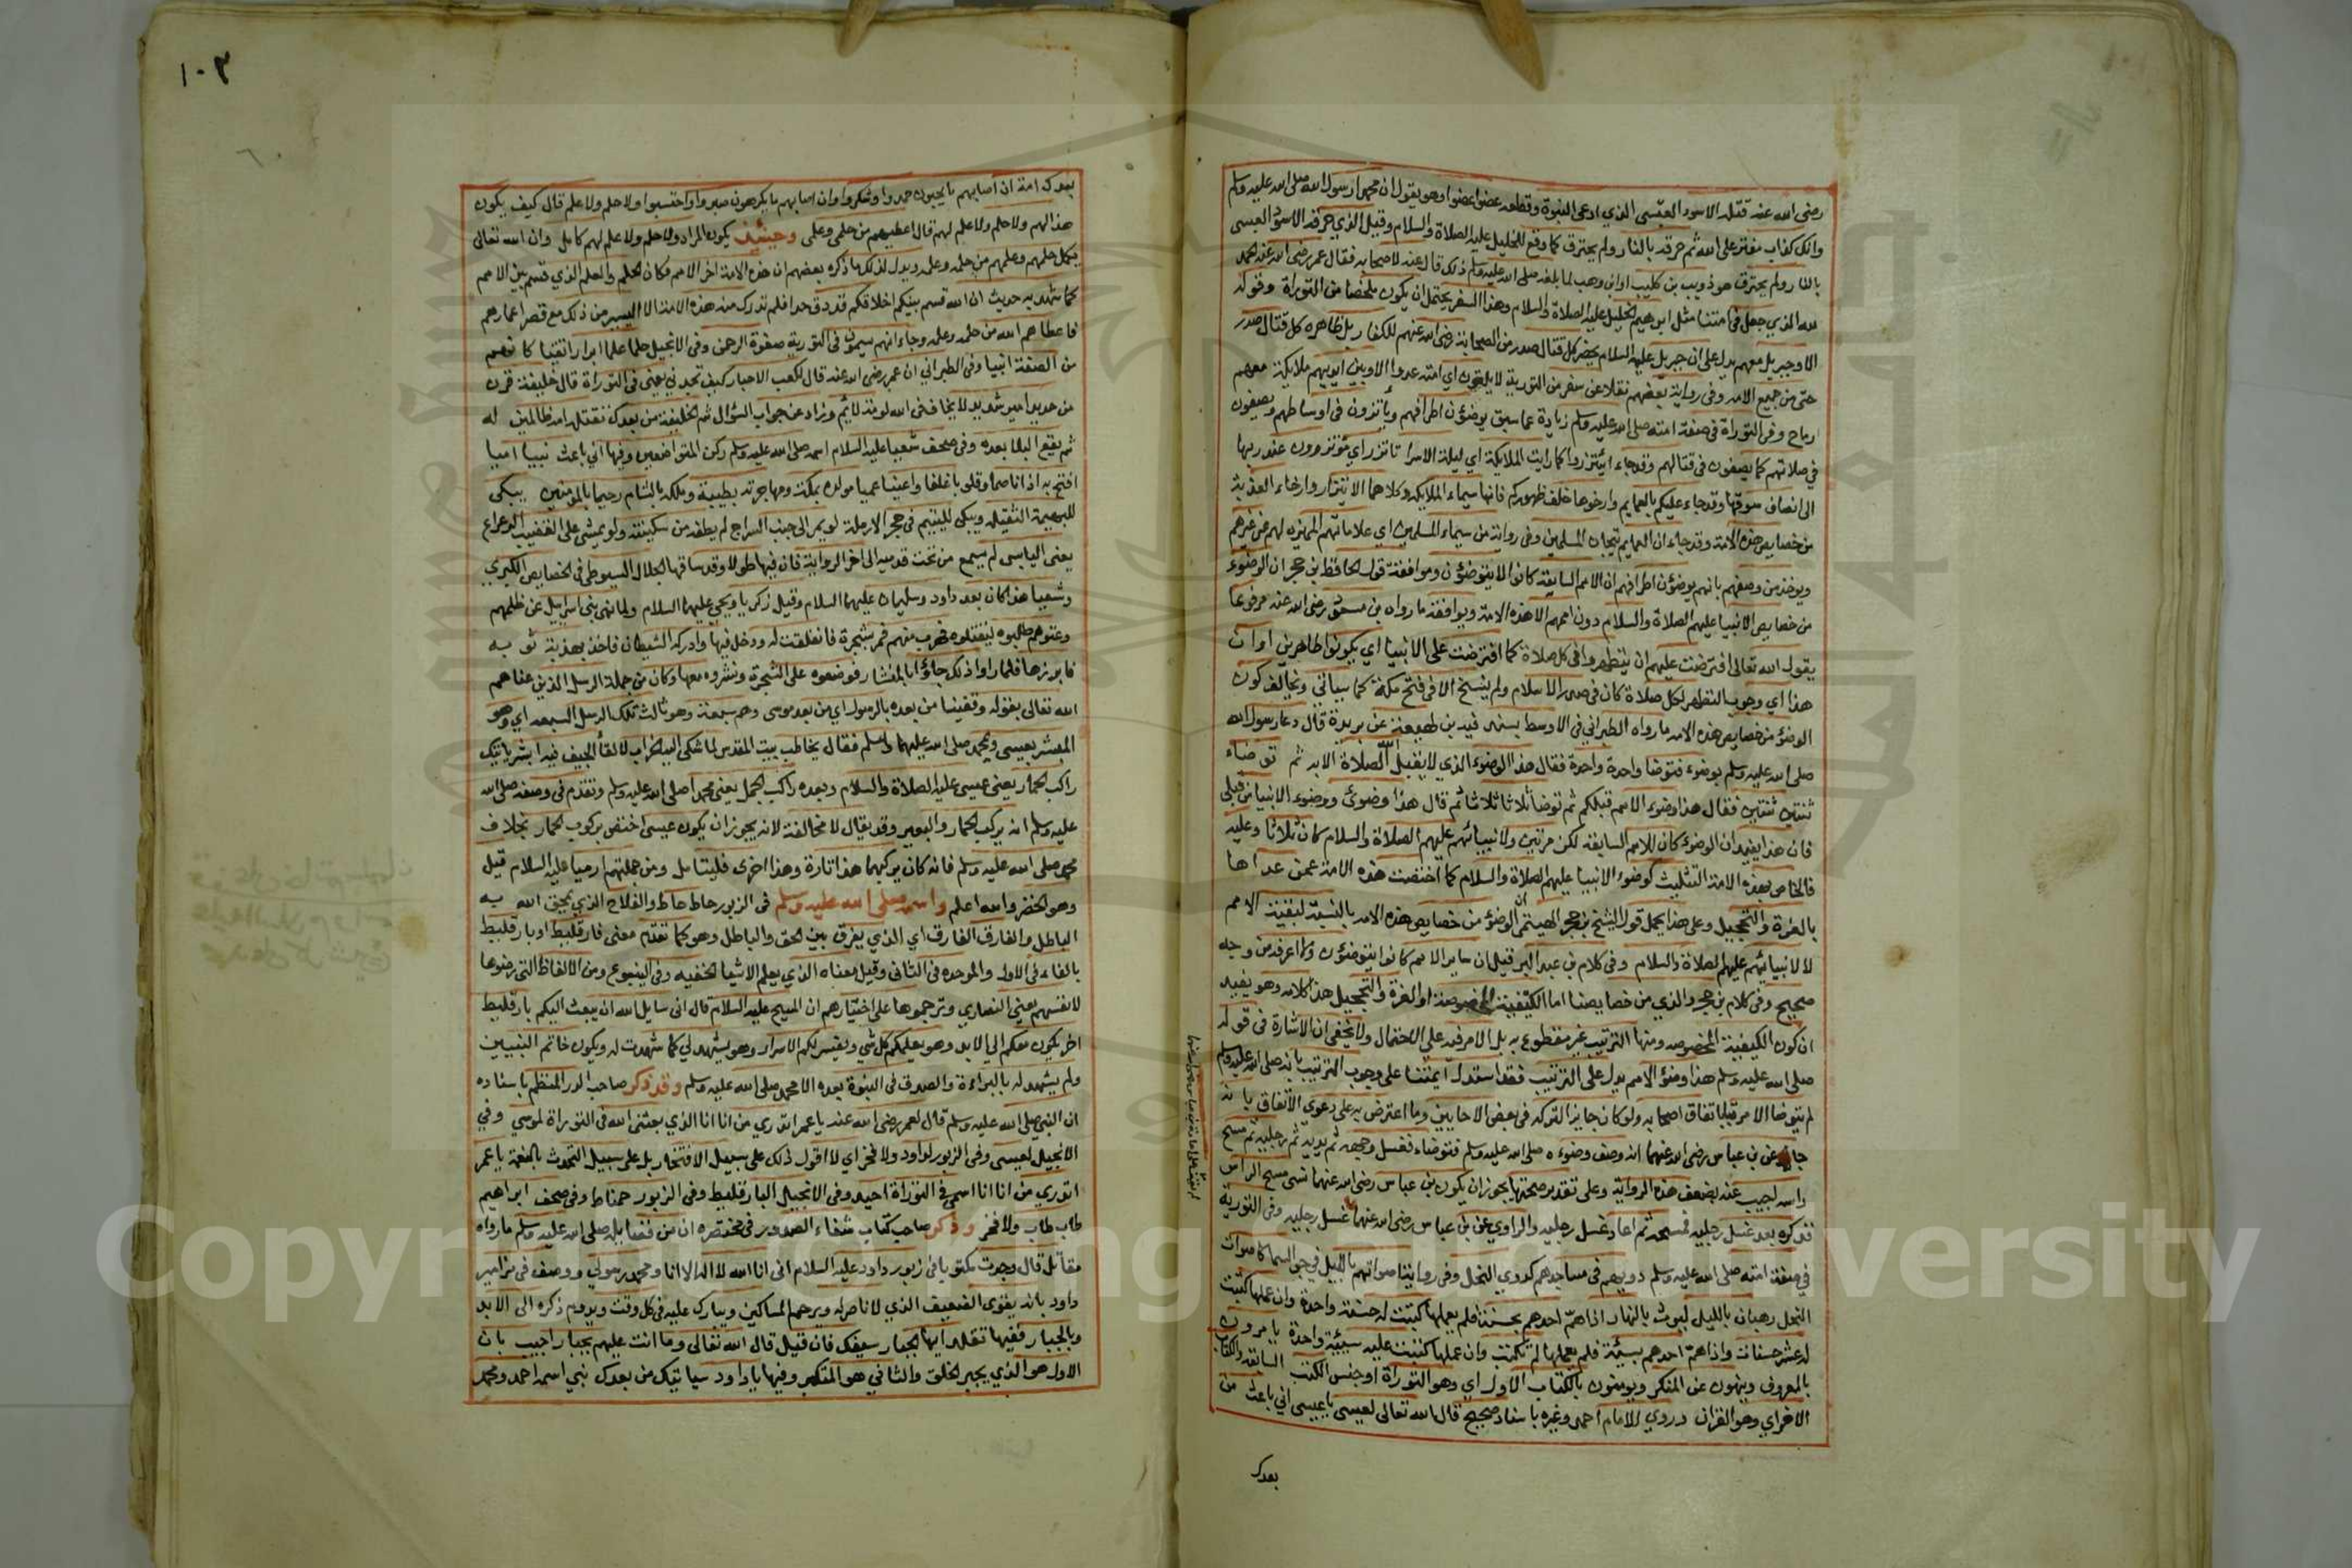 ١٠٣
رضى الله عنه قتله الاسود العنسى الذي ادعى النبوة وقطعه عضوا عضوا وهو يقول ان محمدا رسول الله صلى الله عليه وسلم
وانك كذاب مفتر على الله ثم حرقه بالنار ولم يحترق كما وقع للخليل عليه الصلاة والسلام وقيل الذي حرقه الاسود العنسى
بالنار ولم يحترق هو ذويب بن كليب اوابن وهب لما بلغه صلى الله عليه وسلم ذلك قال عنه لاصحابه فقال عمر رضى الله عنه الحمد
لله الذي جعل في امتنا مثل ابرهيم الخليل عليه الصلاة والسلام وهذا السفر يحتمل ان يكون ملخصا من التوراة وقوله
الا وجبريل معهم يدل على ان جبريل عليه السلام يحضر كل قتال صدر من الصحابة رضى الله عنهم للكفار بل ظاهره كل قتال صدر
حتى من جميع الامه وفى رواية بعضهم نقلا عن سفر من التورية لا يلقون اي امته عدوا الا وبين ايديهم ملايكة معهم
ارماح وفى التوراة فى صفة امته صلى الله عليه وسلم زيادة عما سبق يوضؤن اطرافهم ويأتزرون فى اوساطهم ويصفون
في صلاتهم كما يصفون فى قتالهم وقد جاء ائتزروا كما رايت الملايكة اي ليلة الاسرا تاتزر اي مؤتزرون عند ربها
الى انصاف سوقها وقد جاء عليكم بالعمايم وارخوها خلف ظهوركم فانها سيماء الملايكه وكلاهما الاتزار وارخاء العذبة
من خصايص هذه الامة وقد جاء ان العمايم تيجان المسلمين وفى رواية من سيماء المسلمين اي علاماتهم المميزه لهم عن غيرهم
ويوخذ من وصفهم بانهم يوضؤن اطرافهم ان الامم السابقة كانوا لا يتوضؤن وموافقة قول الحافظ بن حجر ان الوضوء
من خصايص الانبيا عليهم الصلاة والسلام دون اممهم الا هذه الامة ويوافقه ما رواه بن مسعود رضى الله عنه مرفوعا
يقول الله تعالى افترضت عليهم ان يتطهروا فى كل صلاة كما افترضت على الانبيا اي يكونوا طاهرين اوان
هذا اي وجوب التطهر لكل صلاة كان فى صدر الاسلام ولم ينسخ الا فى فتح مكة كما سياتي ويخالف كون
الوضؤ من خصايص هذه الامه ما رواه الطبراني فى الاوسط بسند فيه بن لهيعة عن بريدة قال دعا رسول الله
صلى الله عليه وسلم بوضوء فتوضا واحدة واحدة فقال هذا الوضوء الذي لا يقبل الله الصلاة الا به ثم توضاء
ثنتين ثنتين فقال هذا وضوء الامم قبلكم ثم توضا ثلاثا ثلاثا ثم قال هذا وضوئ ووضوء الانبيا من قبلى
فان هذا يفيد ان الوضوء كان للامم السابقة لكن مرتين ولانبيائهم عليهم الصلاة والسلام كان ثلاثا وعليه
فالخاص بهذه الامة التثليث كوضوء الانبيا عليهم الصلاة والسلام كما اختصت هذه الامة عمن عداها
بالغرة والتحجيل وعلى هذا يحمل قول الشيخ بن حجر الهيتمى ان الوضؤ من خصايص هذه الامه بالنسبة لبقية الامم
لا لانبيائهم عليهم الصلاة والسلام وفى كلام بن عبد البر قيل ان ساير الامم كانوا يتوضؤن ولا اعرفه من وجه
صحيح وفى كلام بن حجر والذي من خصايصنا اما الكيفية المخصوصة او الغرة والتحجيل هذا كلامه وهو يفيد
ان كون الكيفية المخصوصه ومنها الترتيب غير مقطوع به بل الامر فيه على الاحتمال ولا يخفى ان الاشارة فى قوله
صلى الله عليه وسلم هذا وضؤ الامم يدل على الترتيب فقد استدل ايمتنا على وجوب الترتيب بانه صلى الله عليه وسلم
لم يتوضا الا مرتبا باتفاق اصحابه ولو كان جايزا لتركه فى بعض الاحايين وما اعترض به على دعوى الاتفاق بانه
جا عن بن عباس رضى الله عنهما انه وصف وضوءه صلى الله عليه وسلم فتوضاء فغسل وجهه ثم يديه ثم رجليه ثم مسح
راسه اجيب عنه بضعف هذه الرواية وعلى تقدير صحتها يجوز ان يكون بن عباس رضى الله عنهما نسى مسح الراس
فذكره بعد غسل رجليه فمسحه ثم اعاد غسل رجليه والراوي عن بن عباس رضى الله عنهما غسل رجليه وفى التورية
في صفة امته صلى الله عليه وسلم دويهم فى مساجدهم كدوي النحل وفى رواية اصواتهم بالليل في جو السما كاصوات
النحل رهبان بالليل ليوث بالنهار اذا هم احدهم بحسنة فلم يعملها كتبت له حسنة واحدة وان عملها كتبت
له عشر حسنات واذا هم احدهم بسيئة فلم يعملها لم تكتب وان عملها كتبت عليه سيئة واحدة يامرون
بالمعروف وينهون عن المنكر ويومنون بالكتاب الاول اي وهو التوراة اوجنس الكتب السابقه والكتاب
الاخر اي وهو القران وروي للامام احمد وغيره باسناد صحيح قال الله تعالى لعيسى يا عيسى اني باعث من
بعدك
بعدك امة ان اصابهم ما يحبون حمدوا وشكروا وان اصابهم ما يكرهون صبروا واحتسبوا ولا حلم ولا علم قال كيف يكون
هذا لهم ولا حلم ولا علم لهم قال اعطيهم من حلمي وعلمى وحينئذ يكون المراد ولا حلم ولا علم لهم كامل وان الله تعالى
يكمل حلمهم وعلمهم من حلمه وعلمه ويدل لذلك ما ذكره بعضهم ان هذه الامة اخر الامم فكان الحلم والعلم الذي قسم بين الامم
كما شهد به حديث ان الله قسم بينكم اخلاقكم قد دق جدا فلم تدرك منه هذه الامة الا اليسير من ذلك مع قصر اعمارهم
فاعطاهم الله من حلمه وعلمه وجاء انهم يسمون فى التورية صفوة الرحمن وفى الانجيل حلما علما ابرار اتقيا كانهم
من الصفة انبيا وفى الطبراني ان عمر رضى الله عنه قال لكعب الاحبار كيف تجدني يعنى فى التوراة قال خليفة قرن
من حديد امير شديد لا يخاف فى الله لومة لائم وزاد عن جواب السؤال ثم الخليفة من بعدك تقتله امه ظالمين له
ثم يقع البلا بعده وفى صحف شعيا عليه السلام اسمه صلى الله عليه وسلم ركن المتواضعين وفيها اني باعث نبيا اميا
افتح به اذانا صما وقلوبا غلفا واعينا عميا مولده بمكة ومهاجرته بطيبة وملكه بالشام رحيما بالمومنين يبكى
للبهيمة الثقيله ويبكى لليتيم فى حجر الارملة لو يمر الى جنب السراج لم يطفه من سكينته ولو يمشى على القضيب الرعراع
يعنى اليابس لم يسمع من تحت قدميه الى اخر الرواية فان فيها طولا وقد ساقها الجلال السيوطى فى الخصايص الكبري
وشعيا هذا كان بعد داود وسليمان عليهما السلام وقيل زكريا ويحيى عليهما السلام ولما نهى بنى اسرايل عن ظلمهم
وعتوهم طلبوه ليقتلوه فهرب منهم فمر بشجرة فانفلقت له ودخل فيها وادركه الشيطان فاخذ بهدبة ثوبه
فابرزها فلما راوا ذلك جاؤا بالمنشار فوضعوه على الشجرة ونشروه معها وكان من جملة الرسل الذين عناهم
الله تعالى بقوله وقفينا من بعده بالرسول اي من بعد موسى وهم سبعة وهو ثالث تلك الرسل السبعه اي وهو
المبشر بعيسى ومحمد صلى الله عليهما وسلم فقال يخاطب بيت المقدس لما شكى اليه الخراب والقا الجيف فيه ابشر ياتيك
راكب الحمار يعنى عيسى عليه الصلاة والسلام وبعده راكب الجمل يعنى محمدا صلى الله عليه وسلم وتقدم فى وصفه صلى الله
عليه وسلم انه يركب الحمار والبعير وقد يقال لا مخالفة لانه يجوز ان يكون عيسى اختص بركوب الحمار بخلاف
محمد صلى الله عليه وسلم فانه كان يركبهما هذا تارة وهذا اخرى فليتامل ومن جملتهم ارميا عليه السلام قيل
وهو الخضر والله اعلم واسمه صلى الله عليه وسلم فى الزبور حاط حاط والفلاح الذي يمحق الله به
الباطل والفارق الفارق اي الذي يفرق بين الحق والباطل وهو كما تقدم معنى فارقليط او بارقليط
بالفاء فى الاول والموحده فى الثانى وقيل معناه الذي يعلم الاشيا الخفيه وفى الينبوع ومن الالفاظ التى رضوها
لانفسهم يعني النصاري وترجموها على اختيارهم ان المسيح عليه السلام قال انى سايل الله ان يبعث اليكم بارقليط
اخر يكون معكم الى الابد وهو يعلمكم كل شي ويفسر لكم الاسرار وهو يشهد لي كما شهدت له ويكون خاتم النبيين
ولم يشهد له بالبراءة والصدق فى النبوة بعده الا محمد صلى الله عليه وسلم وقد ذكر صاحب الدر المنظم باسناده
ان النبي صلى الله عليه وسلم قال لعمر رضى الله عنه يا عمر اتدري من انا انا الذي بعثنى الله فى التوراة لموسي وفي
الانجيل لعيسى وفى الزبور لداود ولا فخر اي لا اقول ذلك على سبيل الافتخار بل على سبيل التحدث بالنعمة يا عمر
اتدري من انا انا اسمى في التوراة احيد وفى الانجيل البارقليط وفى الزبور حمناط وفى صحف ابراهيم
طاب طاب ولا فخر وذكر صاحب كتاب شفاء الصدور فى مختصره ان من فضايله صلى الله عليه وسلم ما رواه
مقاتل قال وجدت مكتوبا فى زبور داود عليه السلام انى انا الله لا اله الا انا ومحمد رسولي ووصف فى مزامير
داود بانه يقوى الضعيف الذي لا ناصر له ويرحم المساكين ويبارك عليه فى كل وقت ويدوم ذكره الى الابد
وبالجبار ففيها تقلد ايها الجبار سيفك فان قيل قال الله تعالى وما انت عليهم بجبار اجيب بان
الاول هو الذي يجبر الخلق والثاني هو المتكبر وفيها يا داود سياتيك من بعدك نبي اسمه احمد ومحمد
Copyright © King Saud University